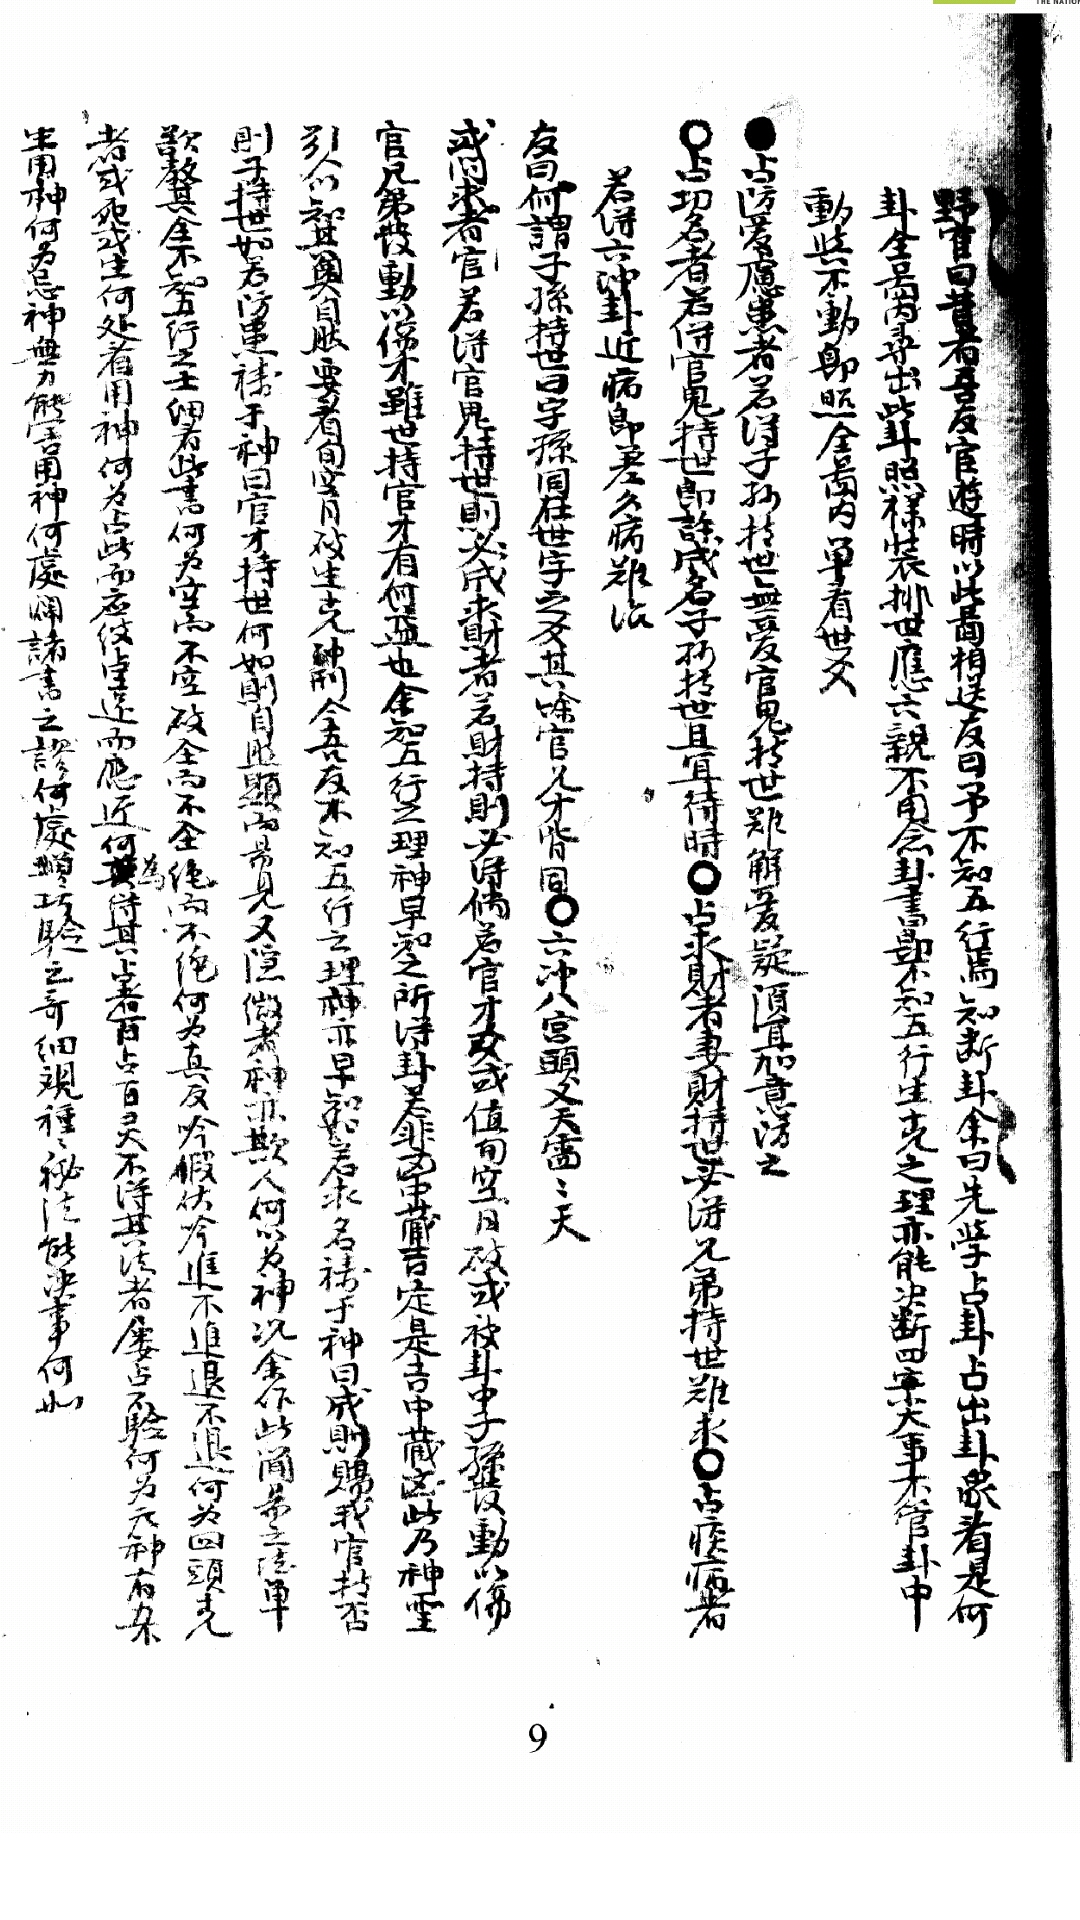 THE NATION
野雀曰昔者吾友宦遊時以此啚相送友曰予不知五行焉知断卦余曰先学占卦占出卦象看是何
卦全啚内尋出此卦照樣裝排世應六親不用念卦書即不知五行生克之理亦能決断四宗大事不管卦中
動與不動即照全啚内单看世爻
●占防憂慮患者若得子孙持世無憂官鬼持世难解憂疑須宜加意防之
○占功名者若得官鬼持世即許成名子孙持世且宜待時○占求財者妻財持世必得兄弟持世难求○占疾病者
若得六冲卦近病即差久病难治
友曰何謂子孫持世曰子孫同在世字之爻其餘官兄才皆同○六冲八宮頭爻天雷〻天
或问求者官若得官鬼持世則必成求財者若財持則必得倘若官才爻或值旬空月破或被卦中子孫發動以傷
官兄弟發動以傷才雖世持官才有何益也余知五行之理神早知之所得卦爻非凶中藏吉定是吉中藏凶此乃神灵
引人以知其奥自然要看旬空月破生克冲刑今吾友不知五行之理神亦早知如若求名祷于神曰成則賜我官持否
則子持世如若防患祷于神曰官才持世何如則自然顯而易見又隐微者神亦欺人何以為神况余作此简易之法单
歎驚其余不知五行之士细看此書何为空而不空破而不破绝而不绝何为真反吟假伏吟進不進退不退何为回頭克
者或死或生何处看用神何为占此而应彼占遠而應近何為其得其占者百占百灵不得其法者屡占不驗何为元神有杂
生用神何为忌神無力能害用神何處闢諸書之謬何處增巧驗之奇细観種〻秘法能决事何如
9